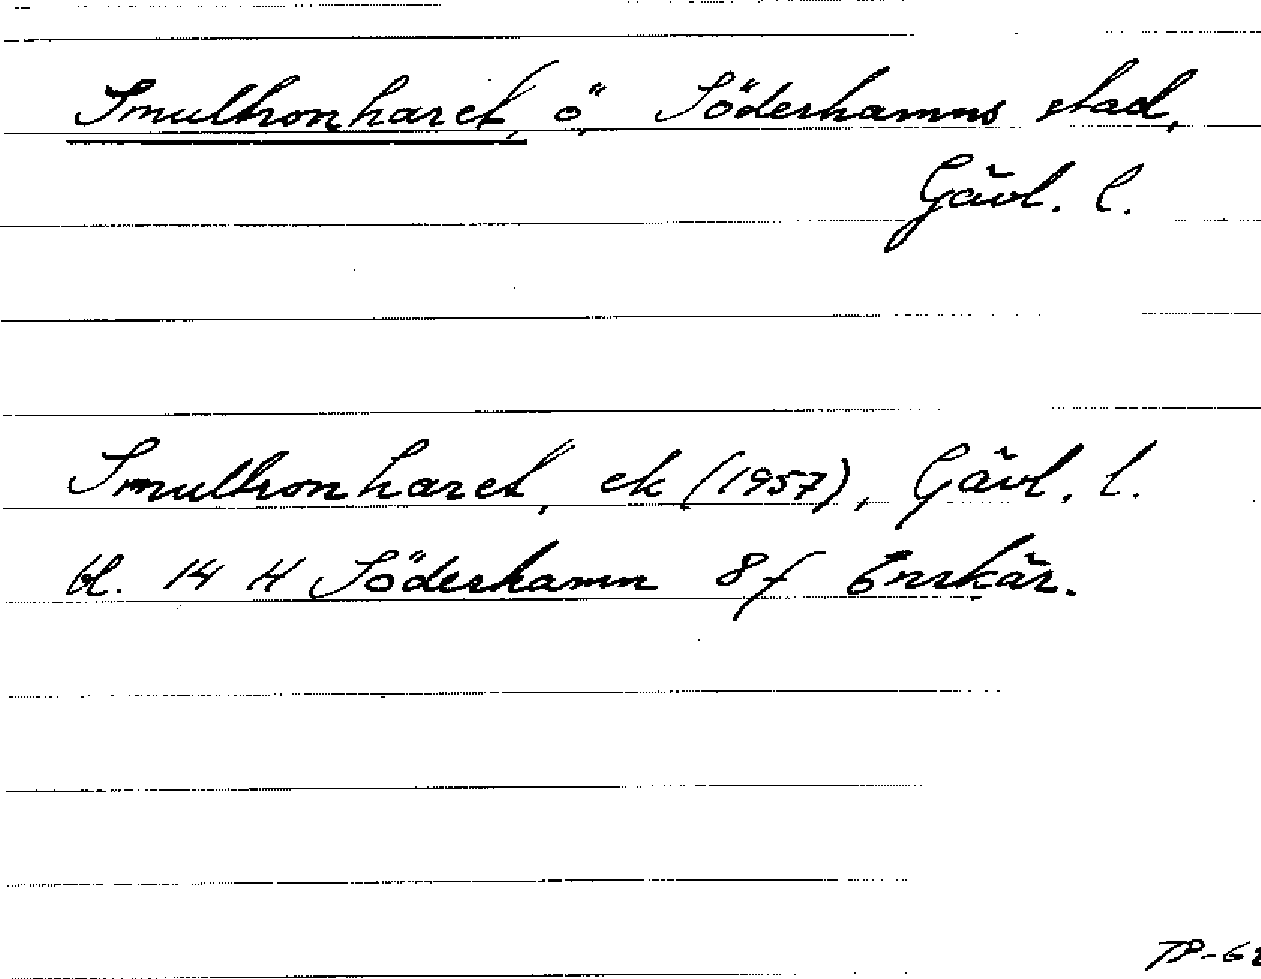 Smultronharet, ö, Söderhamns stad,
Gävl. l.
Smultronharet, ek (1957), Gävl. l.
bl. 14 H Söderhamn 8f Enskär.